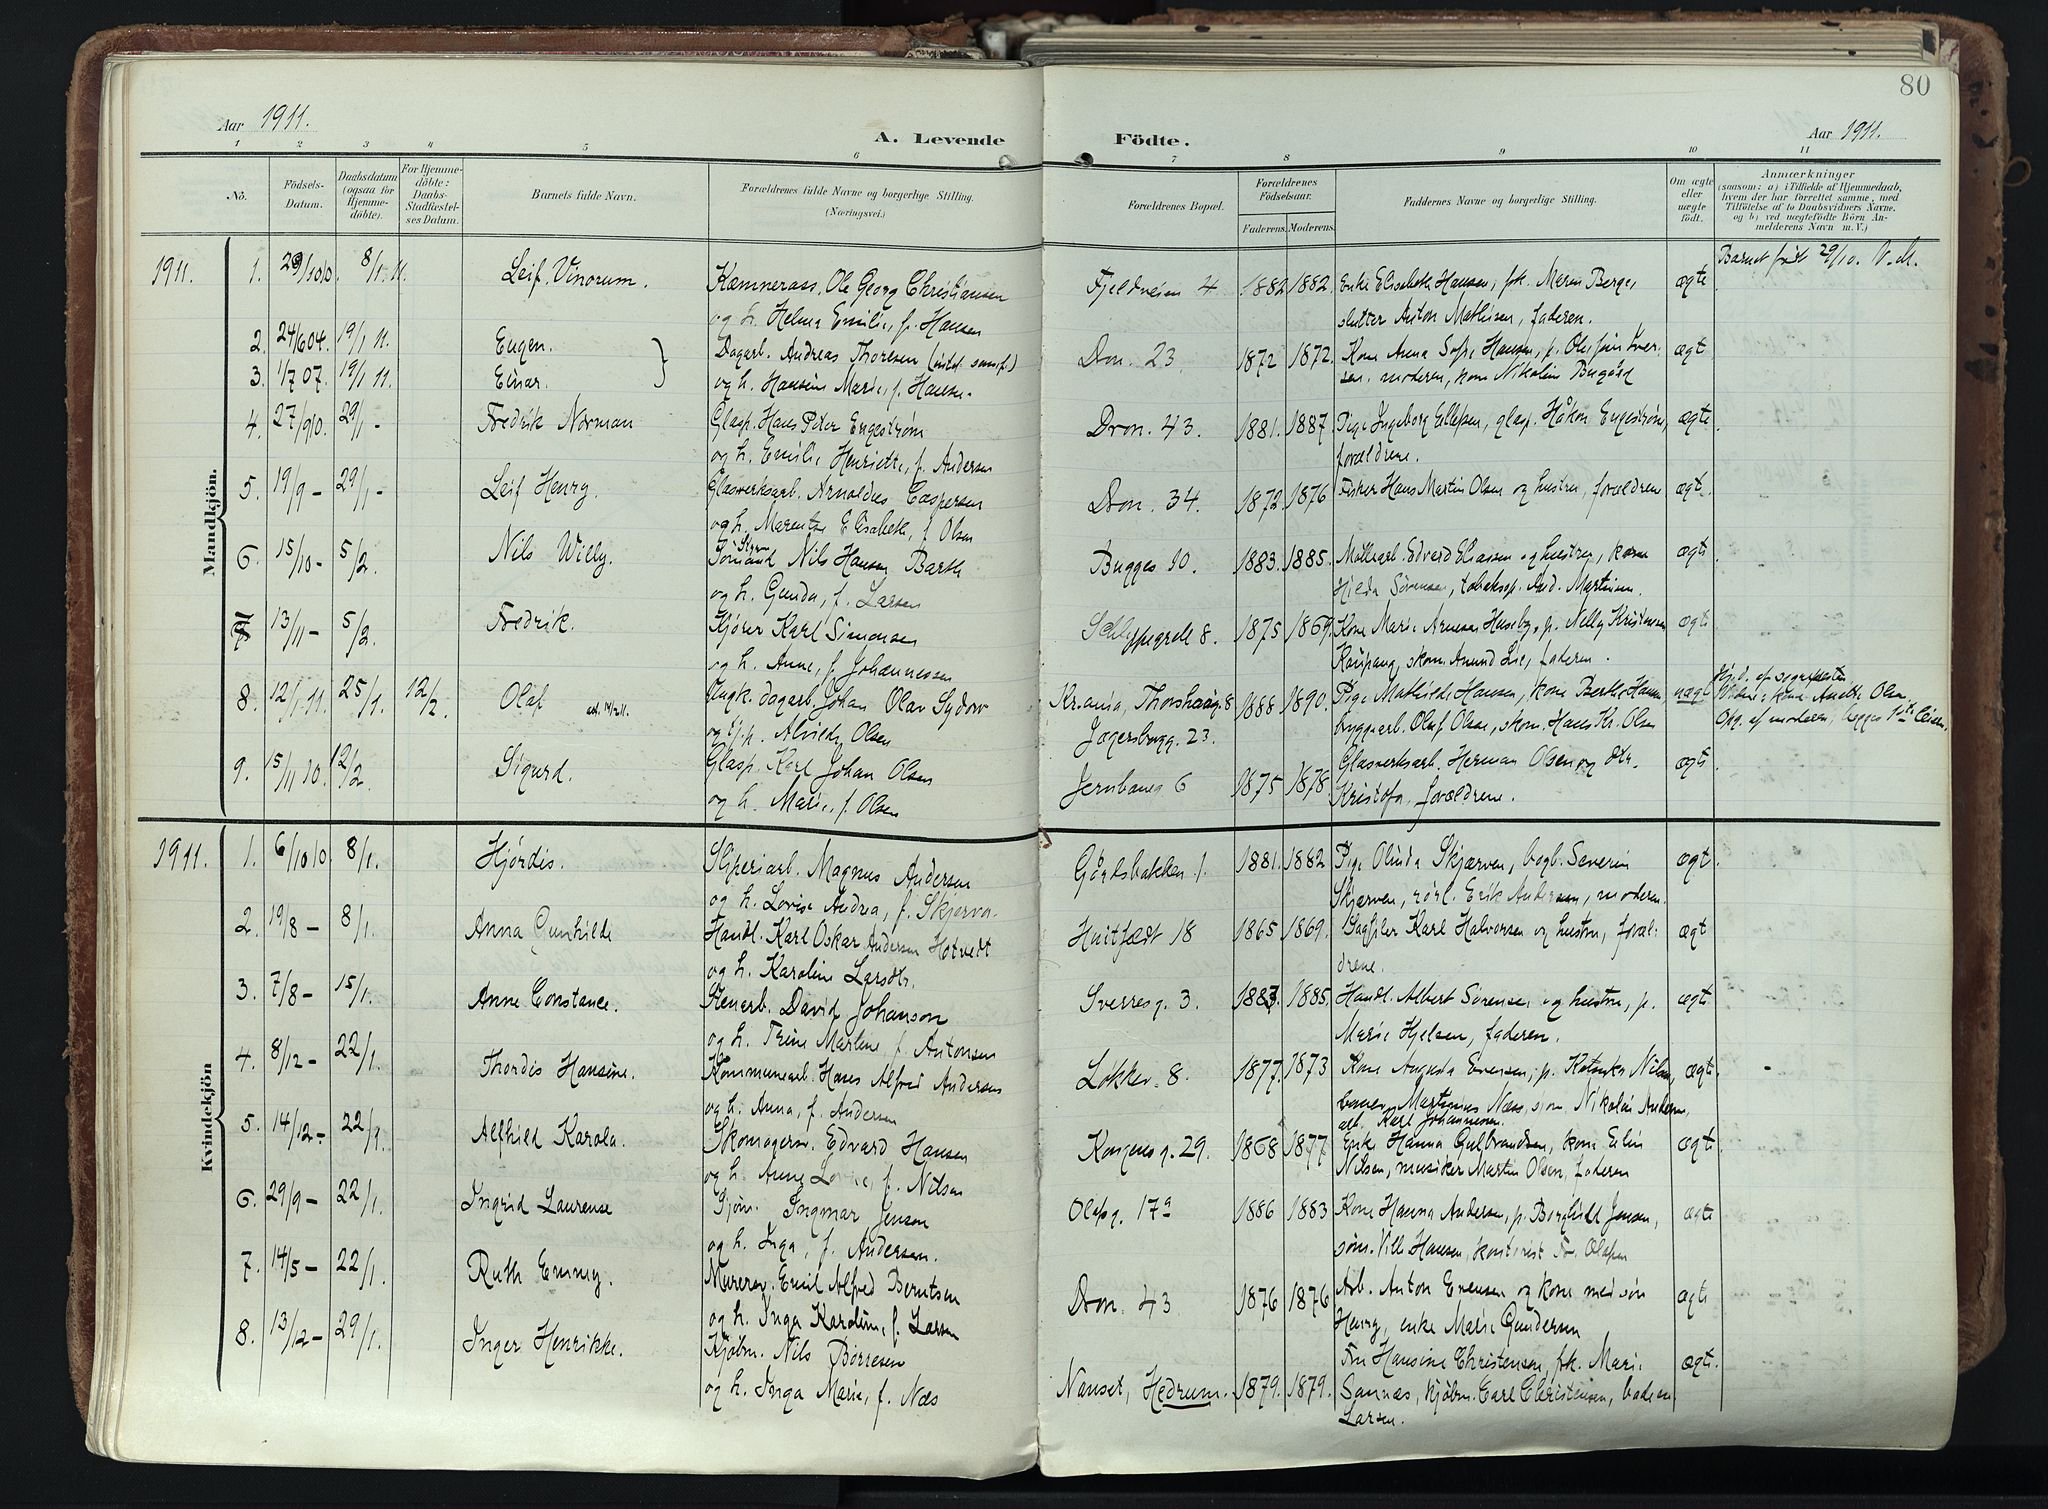 80
Aar 1911.
A. Levende Födte.
Aar 1911.
1 2 3 4 5 6 7 8 9 10 11
No.
Födsels-Datum.
Daabsdatum (ogsaa for Hjemme-döbte).
For Hjemme-döbte: Daabs-Stadfæstel-ses Datum.
Barnets fulde Navn.
Forældrenes fulde Navne og borgerlige Stilling. (Næringsvei.)
Forældrenes Bopæl.
Forældrenes Födselsaar.
Faderens. Moderens.
Faddernes Navne og borgerlige Stilling.
Om ægte eller uægte födt.
Anmærkninger
(saasom: a) i Tilfælde af Hjemmedaab, hvem der har forrettet samme, med Tilföielse af to Daabsvidners Navne, og b) ved uægtefödte Börn An-melderens Navn m. V.)
Mandkjön.
1911. 1. 29/10 10. 8/1. 11. Leif Vinorum. Kæmnerass. Ole Georg Christiansen Fjeldveien 4 1882 1882. Enke Elisabeth Hansen, frk. Maren Berge, ægte Barnet født 29/10.
og h. Helma Emilie, f. Hansen slutter Anton Mathisen, faderen.
2. 24/6 04. 19/1 11. Eugen. Dagarb. Andreas Thoresen Dron. 23. 1872 1872. Kone Anna Sofie Hansen, ægt
3. 1/7 07. 19/1 11. Einar. og h. Hansine Marie, f. Hansen. moderen, kone Nikoline Bugård
4. 27/9 10. 29/1 - Fredrik Norman Glasp. Hans Peter Engestrøm Dron. 43. 1881. 1887. Pige Ingeborg Ellefsen, glasp. Håkon Engestrøm, ægte
og h. Emilie Henriette, f. Andersen forældrene.
5. 19/9 - 29/1 - Leif Henry. Glasverksarb. Arnoldus Caspersen Dron. 34. 1872 1876 Fisker Hans Martin Olsen og hustru, forældrene ægt.
og h. Marentze Elisabeth, f. Olsen
6. 15/10 - 5/2. Nils Willy. Sømand Nils Hansen Barth Bugges 10. 1883. 1885. Møllearb. Edvard Eliassen og hustru, kone ægte
og h. Gunda, f. Larsen Hilda Sørensen, tobakssp. And. Martinsen.
7. 13/11 - 5/2. Fredrik. Kjører Karl Simonsen Schleppegrels 8. 1875 1869. Kone Marie Arnesen Huseby, p. Nelly Kristensen ægte
og h. Anne, f. Johannessen Kaupang, skom. Amund Lie, faderen.
8. 12/1. 11. 25/1. 12/2. Olaf Ungk. dagarb. Johan Olav Sydow Kr.ania, Thorshaug. 8 1888 1890. Pige Mathilde Hansen, kone Berthe Hansen uægt
og pige Alvilde Olsen Jægersborgg. 23. bryggearb. Olaf Olsen, skom. Hans Kr. Olsen
9. 5/11 10. 12/2. Sigurd. Glasp. Karl Johan Olsen Jernbaneg 6 1875 1878 Glasverksarb. Herman Olsen og dtr. ægte
og h. Marie, f. Olsen Kristofa, forældrene.
Kvindekjön
1911. 1. 6/10 10. 8/1. Hjørdis. Sliperiarb. Magnus Andersen Gårdsbakken 1. 1881. 1882 Pige Olinda Skjærven, bogb. Severin ægt
og h. Lovise Andrea, f. Skjærven. Skjærven, rørl. Erik Andersen, moderen.
2. 19/8 - 8/1. Anna Gunhilde Handl. Karl Oskar Andersen Hotvedt Huitfeldt 18 1865 1869. Karl Halvorsen og hustru, foræl- ægt
og h. Karoline Larsdtr. drene.
3. 7/8 - 15/1. Anne Constance. Stenarb. David Johanson Sverresg. 3. 1883. 1885. Handl. Albert Sørensen og hustru, p. ægte
og h. Trine Marlene f. Antonsen Marie Hjelsen, faderen.
4. 8/12 - 22/1. Thordis Hansine. Kommunearb. Hans Alfred Andersen Løkkev. 8. 1877. 1873 Kone Augusta Evensen, ægte
og h. Anna, f. Andersen Martinius Næss, sjøm. Nikolai Andersen, arb. Karl Johannesen.
5. 14/12 - 22/1. Alfhild Karola. Skomagerm. Edvard Hansen Kongensg. 29. 1868 1877 Enke Hanna Gulbrandsen, kone Elin ægte
og h. Anne Lovise, f. Nilsen Nilsen, musiker Martin Olsen, faderen
6. 29/9 - 22/1. Ingrid Laurense Sjøm. Ingmar Jenson Olafsg. 17a 1886 1883 Kone Hanna Andersen, p. Borghild Jensen, ægte
og h. Inga, f. Andersen. sjøm. Ville Hansen, kontorist Fr. Olafsen
7. 14/5 - 22/1. Ruth Emmy. Murerarb. Emil Alfred Berntsen Dron. 43 1876 1876 Arb. Anton Evensen og kone med søn ægte
og h. Inga Karoline, f. Larsen Henry, enke Marie Gundersen
8. 13/12 - 29/1. Inger Henrikke. Kjøbm. Nils Børresen Nanset, Hedrum. 1879. 1879. Fru Hansine Christensen, frk. Marie ægte.
og h. Inga Marie, f. Næs Sannæs, kjøbm. Carl Christensen, bade
Larsen.